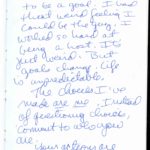 to be a good. I had
that weird feeling I
could be the guy. I
worked so hard at
being a host. It's
just weird. But
goals change. Life
is unpredictable.
The choices I've
made are me. Instead
of questioning choices,
commit to who you
are
your actions are